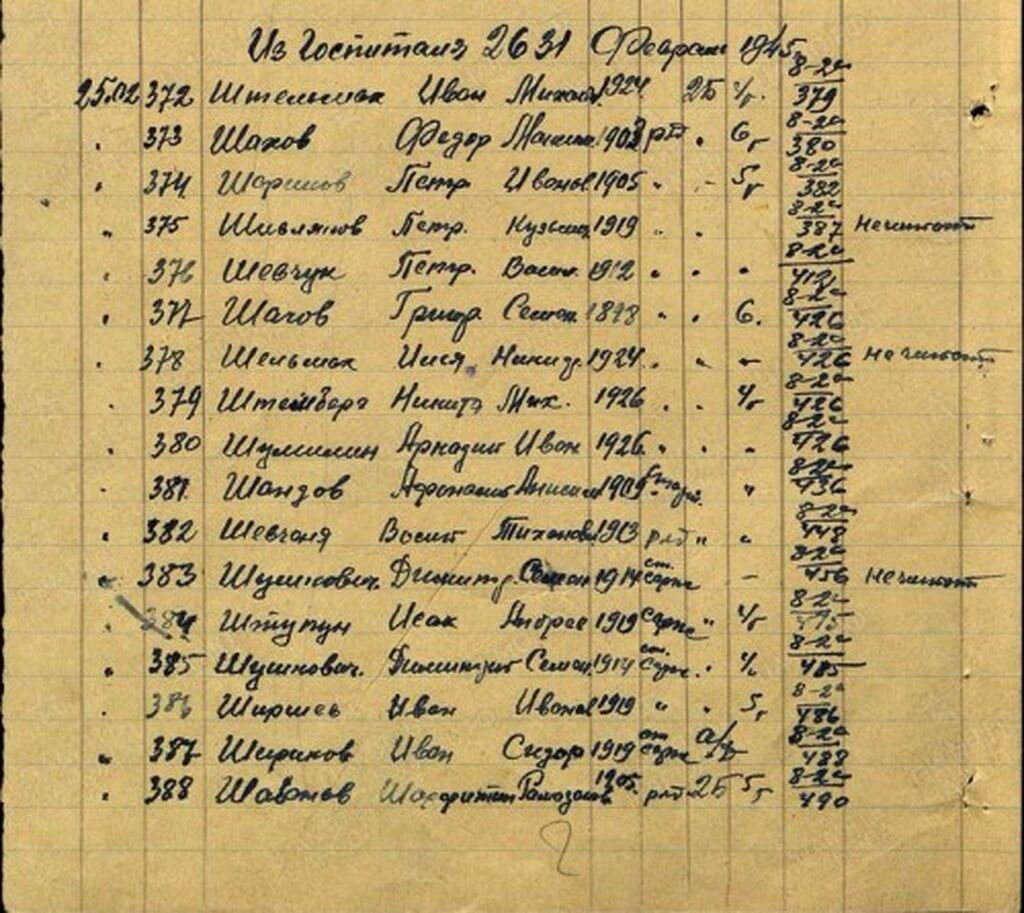 Из Госпиталя 2631 Февраль 1945
25.02 372 Штельмак Иван Михайл 1924 2Б 4/г. 8-20/379
" 373 Шахов Федор Максим 1903 ряд " 6г 8-20/380
" 374 Шариков Петр Иванов 1905 " " 5г 8-20/382
" 375 Петр. Кузьмич 1919 " " 8-20/387
" 376 Шевчук Петр. Васил. 1912 " " " 8-20/412
" 377 Шахов Григор. Семен 1898 " " 6. 8-20/426
" 378 Шельмак 1924 " " " 8-20/426
" 379 Штейнберг Никита Мих. 1926 " " 4г 8-20/426
" 380 Шумилин Аркадий Иван 1926 " " " 8-20/426
" 381 Шандов Афонасий Анисим 1909 " 8-20/436
" 382 Васит Тихонов 1913 ряд " " 8-20/448
" 383 Шушкович. Димитр. Семен 1914 ст. серж - 8-20/456
" 384 Штупун Исак Андрее 1919 серж " 4/г 8-20
" 385 Шушкович. Димитрий Семен 1914 ст. серж. " 4/г 8-20/485
" 386 Ширшев Иван Иванов 1919 " " 5г 8-20/486
" 387 Шириков Иван Сидор 1919 ст серж 8-20/488
" 388 Рамазанов 1905. ряд 2Б 5г 8-20/490